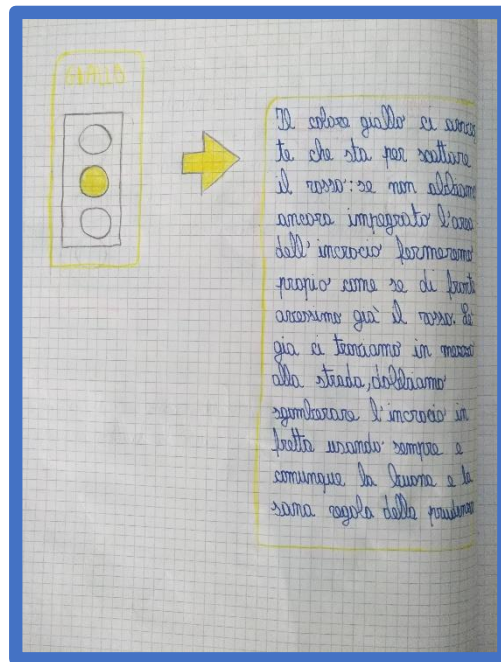 GIALLO
Il colore giallo ci avver
te che sta per scattare
il rosso: se non abbiamo
ancora impegnato l'area
dell'incrocio fermeremo
proprio come se di fronte
avessimo già il rosso. Se
già ci troviamo in mezzo
alla strada, dobbiamo
sgomberare l'incrocio in
fretta usando sempre e
comunque la buona e la
sana regola della prudenza